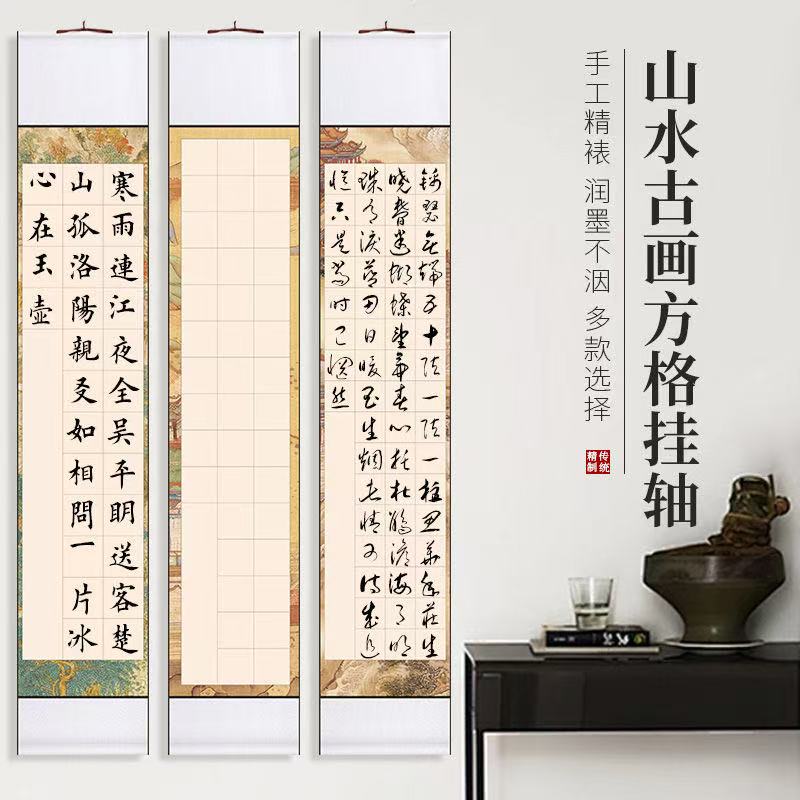 山水古画方格挂轴
手工精裱 润墨不洇 多款选择
传统
精制
錦瑟無端五十弦一弦一柱思華年莊生
曉夢迷蝴蝶望帝春心托杜鵑滄海月明
珠有淚藍田日暖玉生煙此情可待成追
憶只是當時已惘然
寒雨連江夜全吴平明送客楚
山孤洛陽親友如相問一片冰
心在玉壺